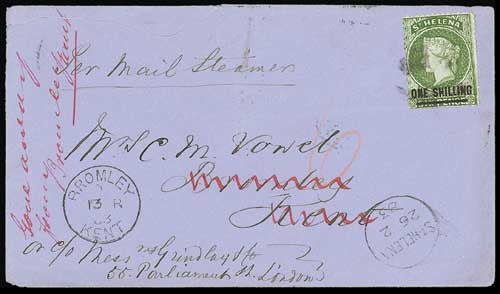 Gone away
from Bromley Kent
Per Mail Steamer
ST HELENA
ONE SHILLING
Mrs C. M. Vowel
Bromley
Kent
or c/o Messrs Grindlay & Co
55. Parliament St. London
BROMLEY
13 R
83
KENT
ST HELENA
26 2
83